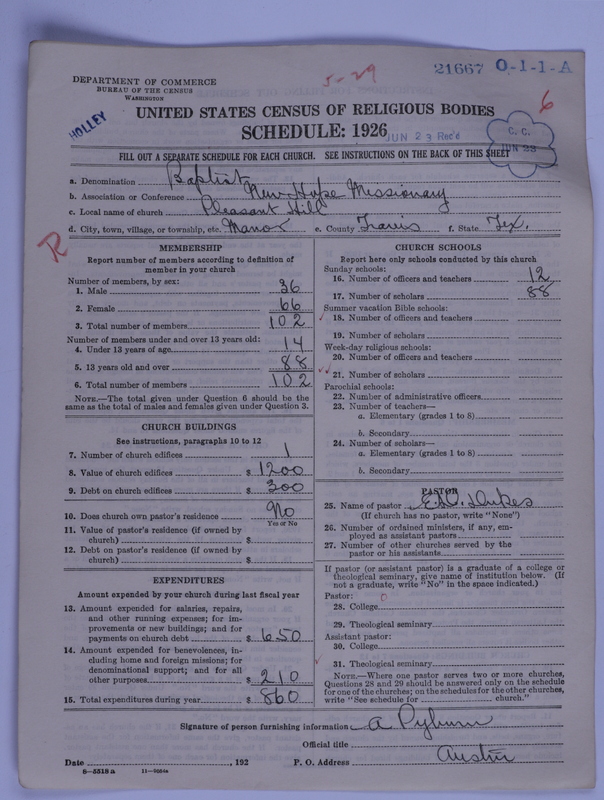 21667 0-1-1-A
5-29
DEPARTMENT OF COMMERCE
BUREAU OF THE CENSUS
WASHINGTON
HOLLEY
6
UNITED STATES CENSUS OF RELIGIOUS BODIES
SCHEDULE: 1926
JUN 23 Rec'd
C. C.
JUN 23
FILL OUT A SEPARATE SCHEDULE FOR EACH CHURCH. SEE INSTRUCTIONS ON THE BACK OF THIS SHEET
a. Denomination Baptist
b. Association or Conference New Hope Missionary
c. Local name of church Pleasant Hill
d. City, town, village, or township, etc. Manor e. County Travis f. State Tex.
R
MEMBERSHIP
Report number of members according to definition of
member in your church
Number of members, by sex:
1. Male 36
2. Female 66
3. Total number of members 102
Number of members under and over 13 years old:
4. Under 13 years of age 14
5. 13 years old and over 88
6. Total number of members 102
NOTE.—The total given under Question 6 should be the
same as the total of males and females given under Question 3.
CHURCH BUILDINGS
See instructions, paragraphs 10 to 12
7. Number of church edifices 1
8. Value of church edifices $ 1200
9. Debt on church edifices $ 300
10. Does church own pastor's residence No
Yes or No
11. Value of pastor's residence (if owned by
church) $
12. Debt on pastor's residence (if owned by
church) $
EXPENDITURES
Amount expended by your church during last fiscal year
13. Amount expended for salaries, repairs,
and other running expenses; for im-
provements or new buildings; and for
payments on church debt $ 650
14. Amount expended for benevolences, in-
cluding home and foreign missions; for
denominational support; and for all
other purposes $ 210
15. Total expenditures during year $ 860
CHURCH SCHOOLS
Report here only schools conducted by this church
Sunday schools:
16. Number of officers and teachers 12
17. Number of scholars 88
Summer vacation Bible schools:
18. Number of officers and teachers
19. Number of scholars
Week-day religious schools:
20. Number of officers and teachers
21. Number of scholars
Parochial schools:
22. Number of administrative officers
23. Number of teachers—
a. Elementary (grades 1 to 8)
b. Secondary
24. Number of scholars—
a. Elementary (grades 1 to 8)
b. Secondary
PASTOR
25. Name of pastor Dukes
(If church has no pastor, write "None")
26. Number of ordained ministers, if any, em-
ployed as assistant pastors
27. Number of other churches served by the
pastor or his assistants
If pastor (or assistant pastor) is a graduate of a college or
theological seminary, give name of institution below. (If
not a graduate, write "No" in the space indicated.)
Pastor: 0
28. College
29. Theological seminary
Assistant pastor:
30. College
31. Theological seminary
NOTE.—Where one pastor serves two or more churches,
Questions 28 and 29 should be answered only on the schedule
for one of the churches; on the schedules for the other churches,
write "See schedule for church."
Signature of person furnishing information A Pyburn
Official title
Date , 192 P. O. Address Austin
8-5518 a